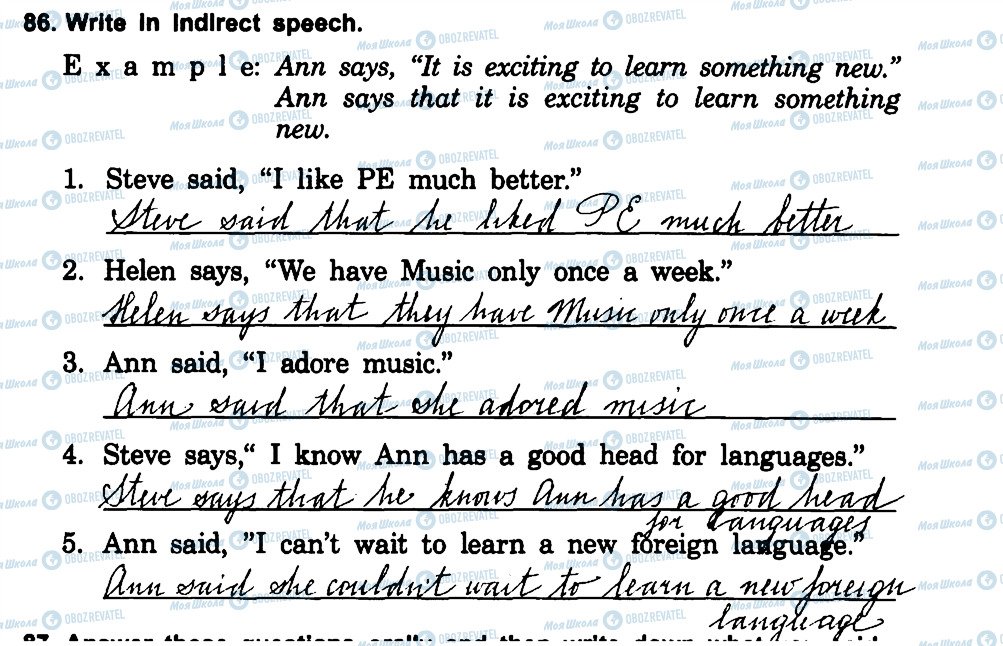 86. Write in indirect speech.
E x a m p l e: Ann says, “It is exciting to learn something new.”
Ann says that it is exciting to learn something
new.
1. Steve said, “I like PE much better.”
Steve said that he liked PE much better
2. Helen says, “We have Music only once a week.”
Helen says that they have Music only once a week
3. Ann said, “I adore music.”
Ann said that she adored music
4. Steve says,“ I know Ann has a good head for languages.”
Steve says that he knows Ann has a good head
for languages
5. Ann said, ”I can’t wait to learn a new foreign language.”
Ann said she couldn't wait to learn a new foreign
language